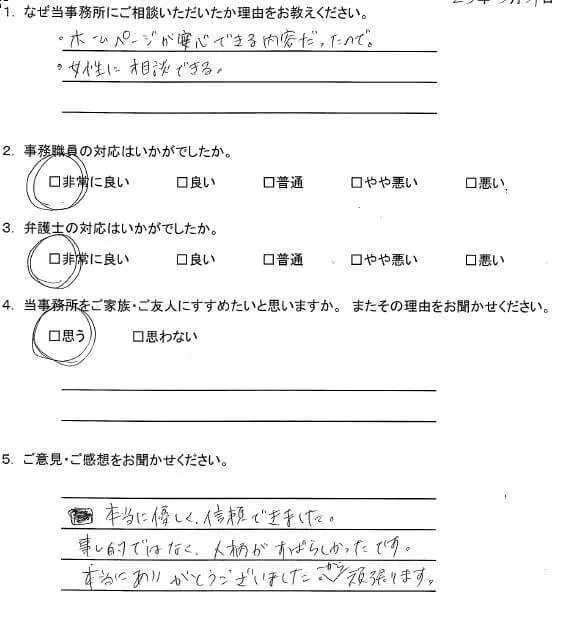 1. なぜ当事務所にご相談いただいたか理由をお教えください。
・ホームページが安心できる内容だったので。
・女性に相談できる。
2. 事務職員の対応はいかがでしたか。
□非常に良い □良い □普通 □やや悪い □悪い
3. 弁護士の対応はいかがでしたか。
□非常に良い □良い □普通 □やや悪い □悪い
4. 当事務所をご家族・ご友人にすすめたいと思いますか。 またその理由をお聞かせください。
□思う □思わない
5. ご意見・ご感想をお聞かせください。
本当に優しく、信頼できました。
事ム的ではなく、人柄がすばらしかったです。
本当にありがとうございました。から頑張ります。